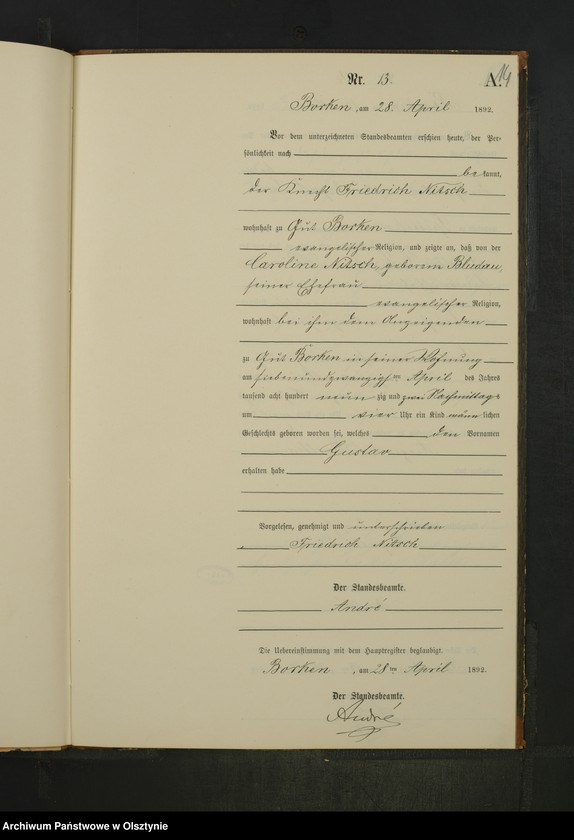 Nr. 15.
A.
14
Borken, am 28. April 1892.
Vor dem unterzeichneten Standesbeamten erschien heute, der Per-
sönlichkeit nach
be kannt,
der Knecht Friedrich Nitsch
wohnhaft zu Gut Borken
evangelischer Religion, und zeigte an, daß von der
Caroline Nitsch, geborenen Bludau,
seiner Ehefrau
evangelischer Religion,
wohnhaft bei ihm dem Anzeigenden
zu Gut Borken in seiner Wohnung
am siebenundzwanzigsten April des Jahres
tausend acht hundert neun zig und zwei Nachmittags
um vier Uhr ein Kind männ lichen
Geschlechts geboren worden sei, welches den Vornamen
Gustav
erhalten habe
Vorgelesen, genehmigt und unterschrieben
Friedrich Nitsch
Der Standesbeamte.
André
Die Uebereinstimmung mit dem Hauptregister beglaubigt.
Borken, am 28 ten April 1892.
Der Standesbeamte.
André
Archiwum Państwowe w Olsztynie